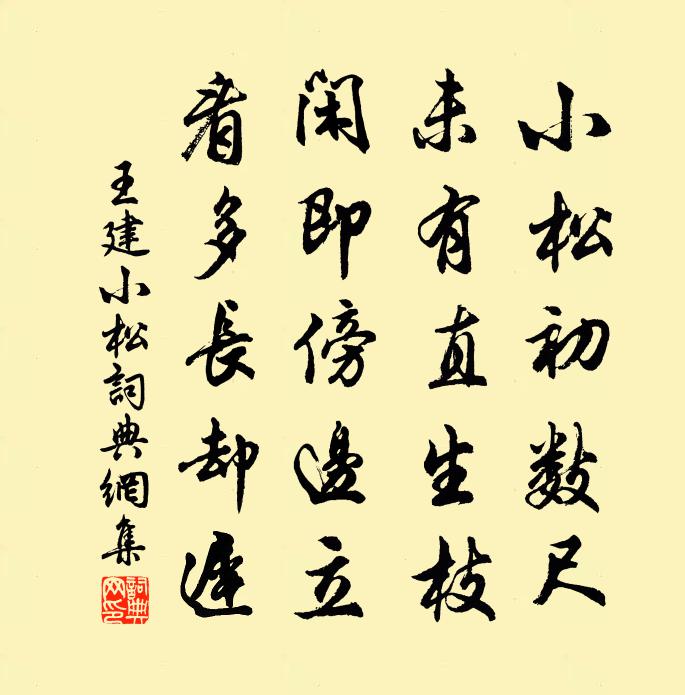 小松初数尺
未有直生枝
閑即傍邊立
看多長却遲
王建小松詞典網集
詞典網印